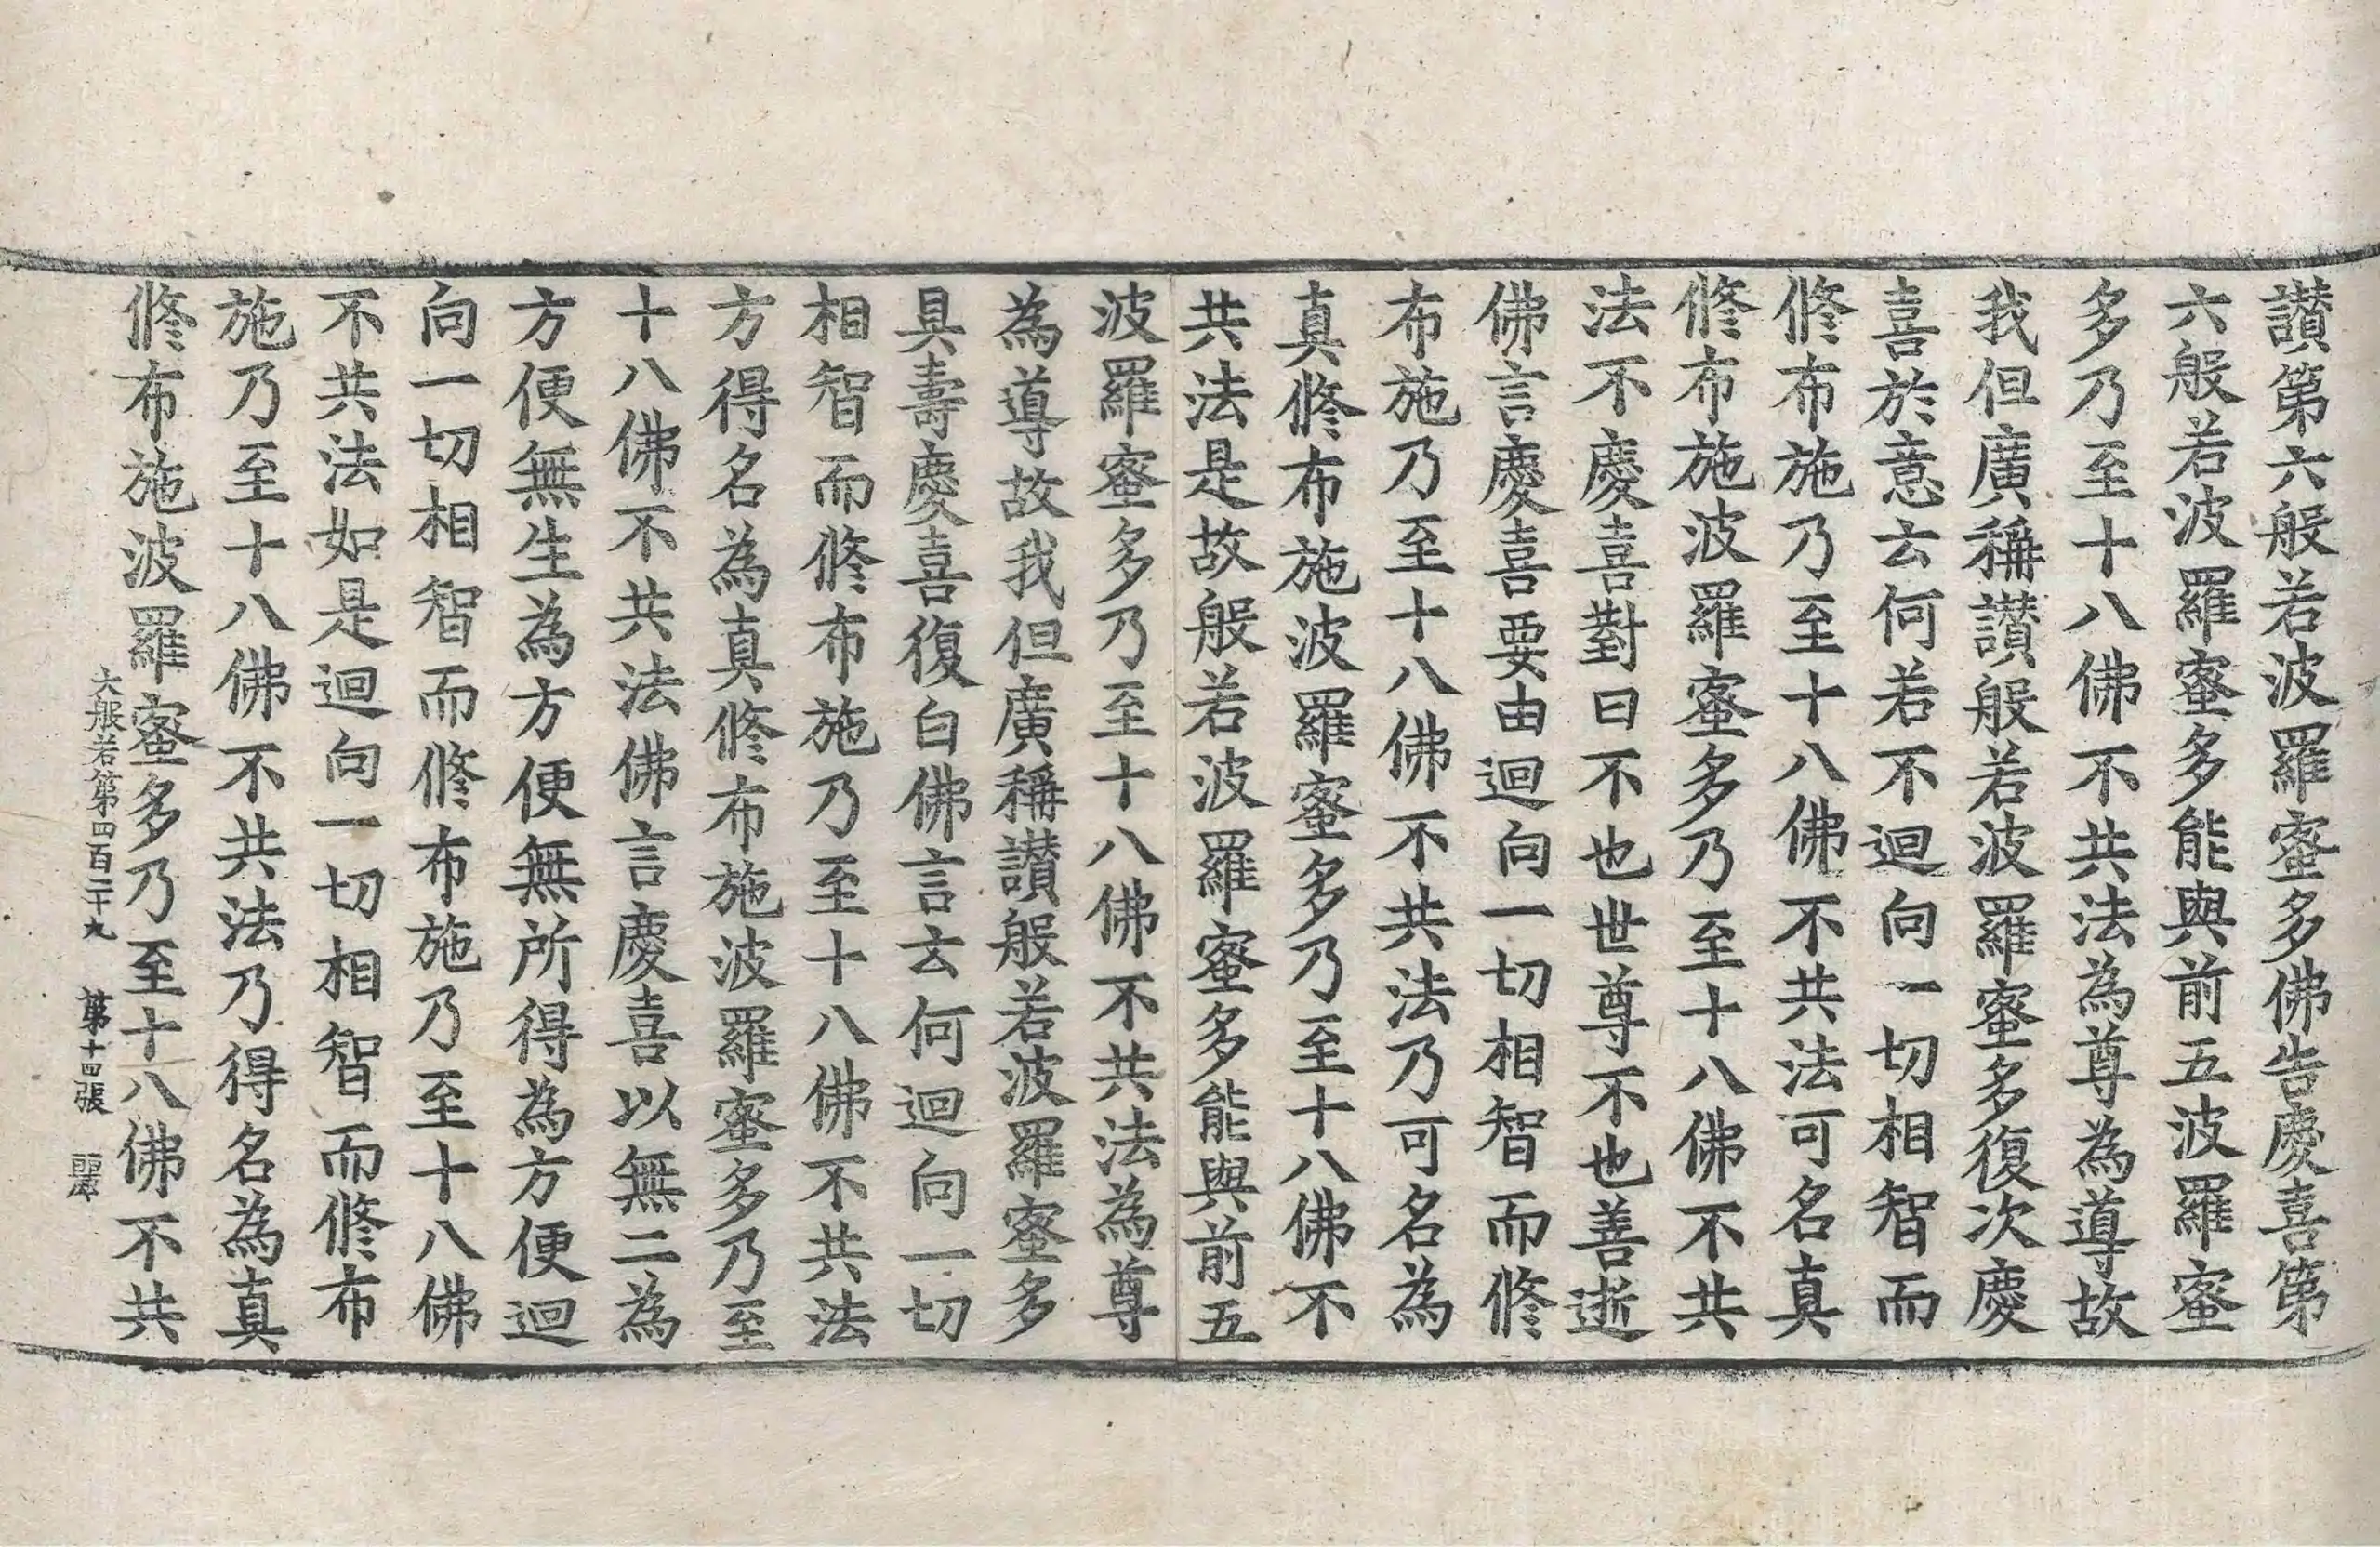 讃第六般若波羅蜜多佛告慶喜第
六般若波羅蜜多能與前五波羅蜜
多乃至十八佛不共法為尊為導故
我但廣稱讃般若波羅蜜多復次慶
喜於意云何若不迴向一切相智而
修布施乃至十八佛不共法可名真
修布施波羅蜜多乃至十八佛不共
法不慶喜對曰不也世尊不也善逝
佛言慶喜要由迴向一切相智而修
布施乃至十八佛不共法乃可名為
真修布施波羅蜜多乃至十八佛不
共法是故般若波羅蜜多能與前五
波羅蜜多乃至十八佛不共法為尊
為導故我但廣稱讃般若波羅蜜多
具壽慶喜復白佛言云何迴向一切
相智而修布施乃至十八佛不共法
方得名為真修布施波羅蜜多乃至
十八佛不共法佛言慶喜以無二為
方便無生為方便無所得為方便迴
向一切相智而修布施乃至十八佛
不共法如是迴向一切相智而修布
施乃至十八佛不共法乃得名為真
修布施波羅蜜多乃至十八佛不共
大般若第四百二十九 第十四張